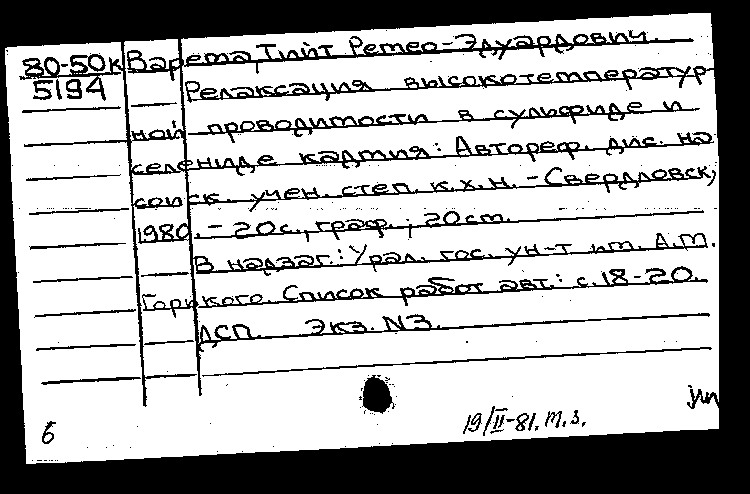 80-50к Варета, Тийт Ретео-Эдуардович.
5194 Релаксация высокотемператур-
ной проводимости в сульфиде и
селениде кадмия: Автореф. дис. на
соиск. учен. степ. к.х.н. - Свердловск,
1980. - 20 с., граф.; 20 см.
В надзаг.: Урал. гос. ун-т им. А.М.
Горького. Список работ авт.: с. 18-20.
ДСП. Экз. N3.
6 19/II-81. т.з.